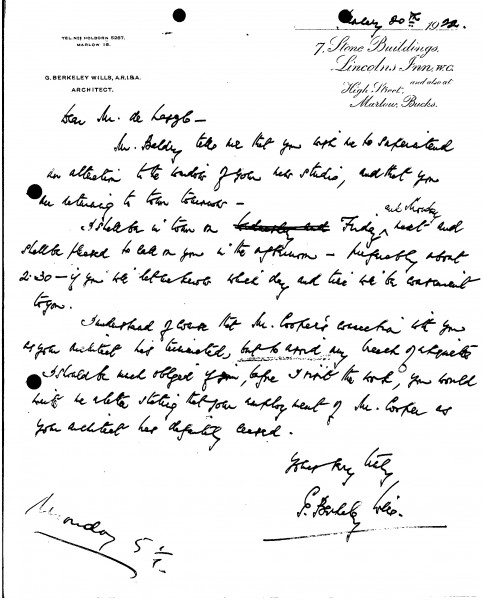 TEL. NOS HOLBORN 5287.
MARLOW 18.
20th 1922.
G. BERKELEY WILLS, A.R.I.B.A.
ARCHITECT.
7, Stone Buildings,
Lincolns Inn, W.C.
and also at
High Street,
Marlow, Bucks.
Dear Mr. de Laszlo –
Mr. Baldry tells me that you wish me to superintend
an alteration to the window of your new studio, and that you
are returning to town tomorrow –
and Thursday
I shall be in town on Friday next and
shall be pleased to call on you in the afternoon – preferably about
2:30 – if you will let me know which day and time will be convenient
to you.
I understand of course that Mr. Cooper's connection with you
as your architect has terminated, but to avoid any breach of etiquette
I should be much obliged if you, before I visit the work, you would
write me a letter stating that your employment of Mr. Cooper as
your architect has definitely ceased.
Yours very truly
G. Berkeley Wills.
Monday 5